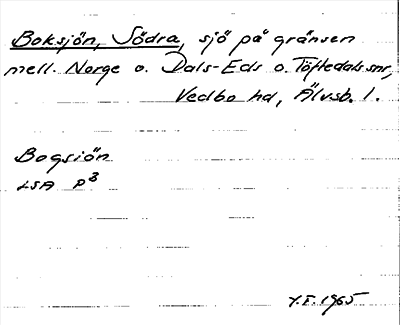 Boksjön, Södra, sjö på gränsen
mell. Norge o. Dals-Eds o. Töftedals snr,
Vedbo hd, Älvsb. l.
Bogsiön
LSA P3
Y.E. 1965